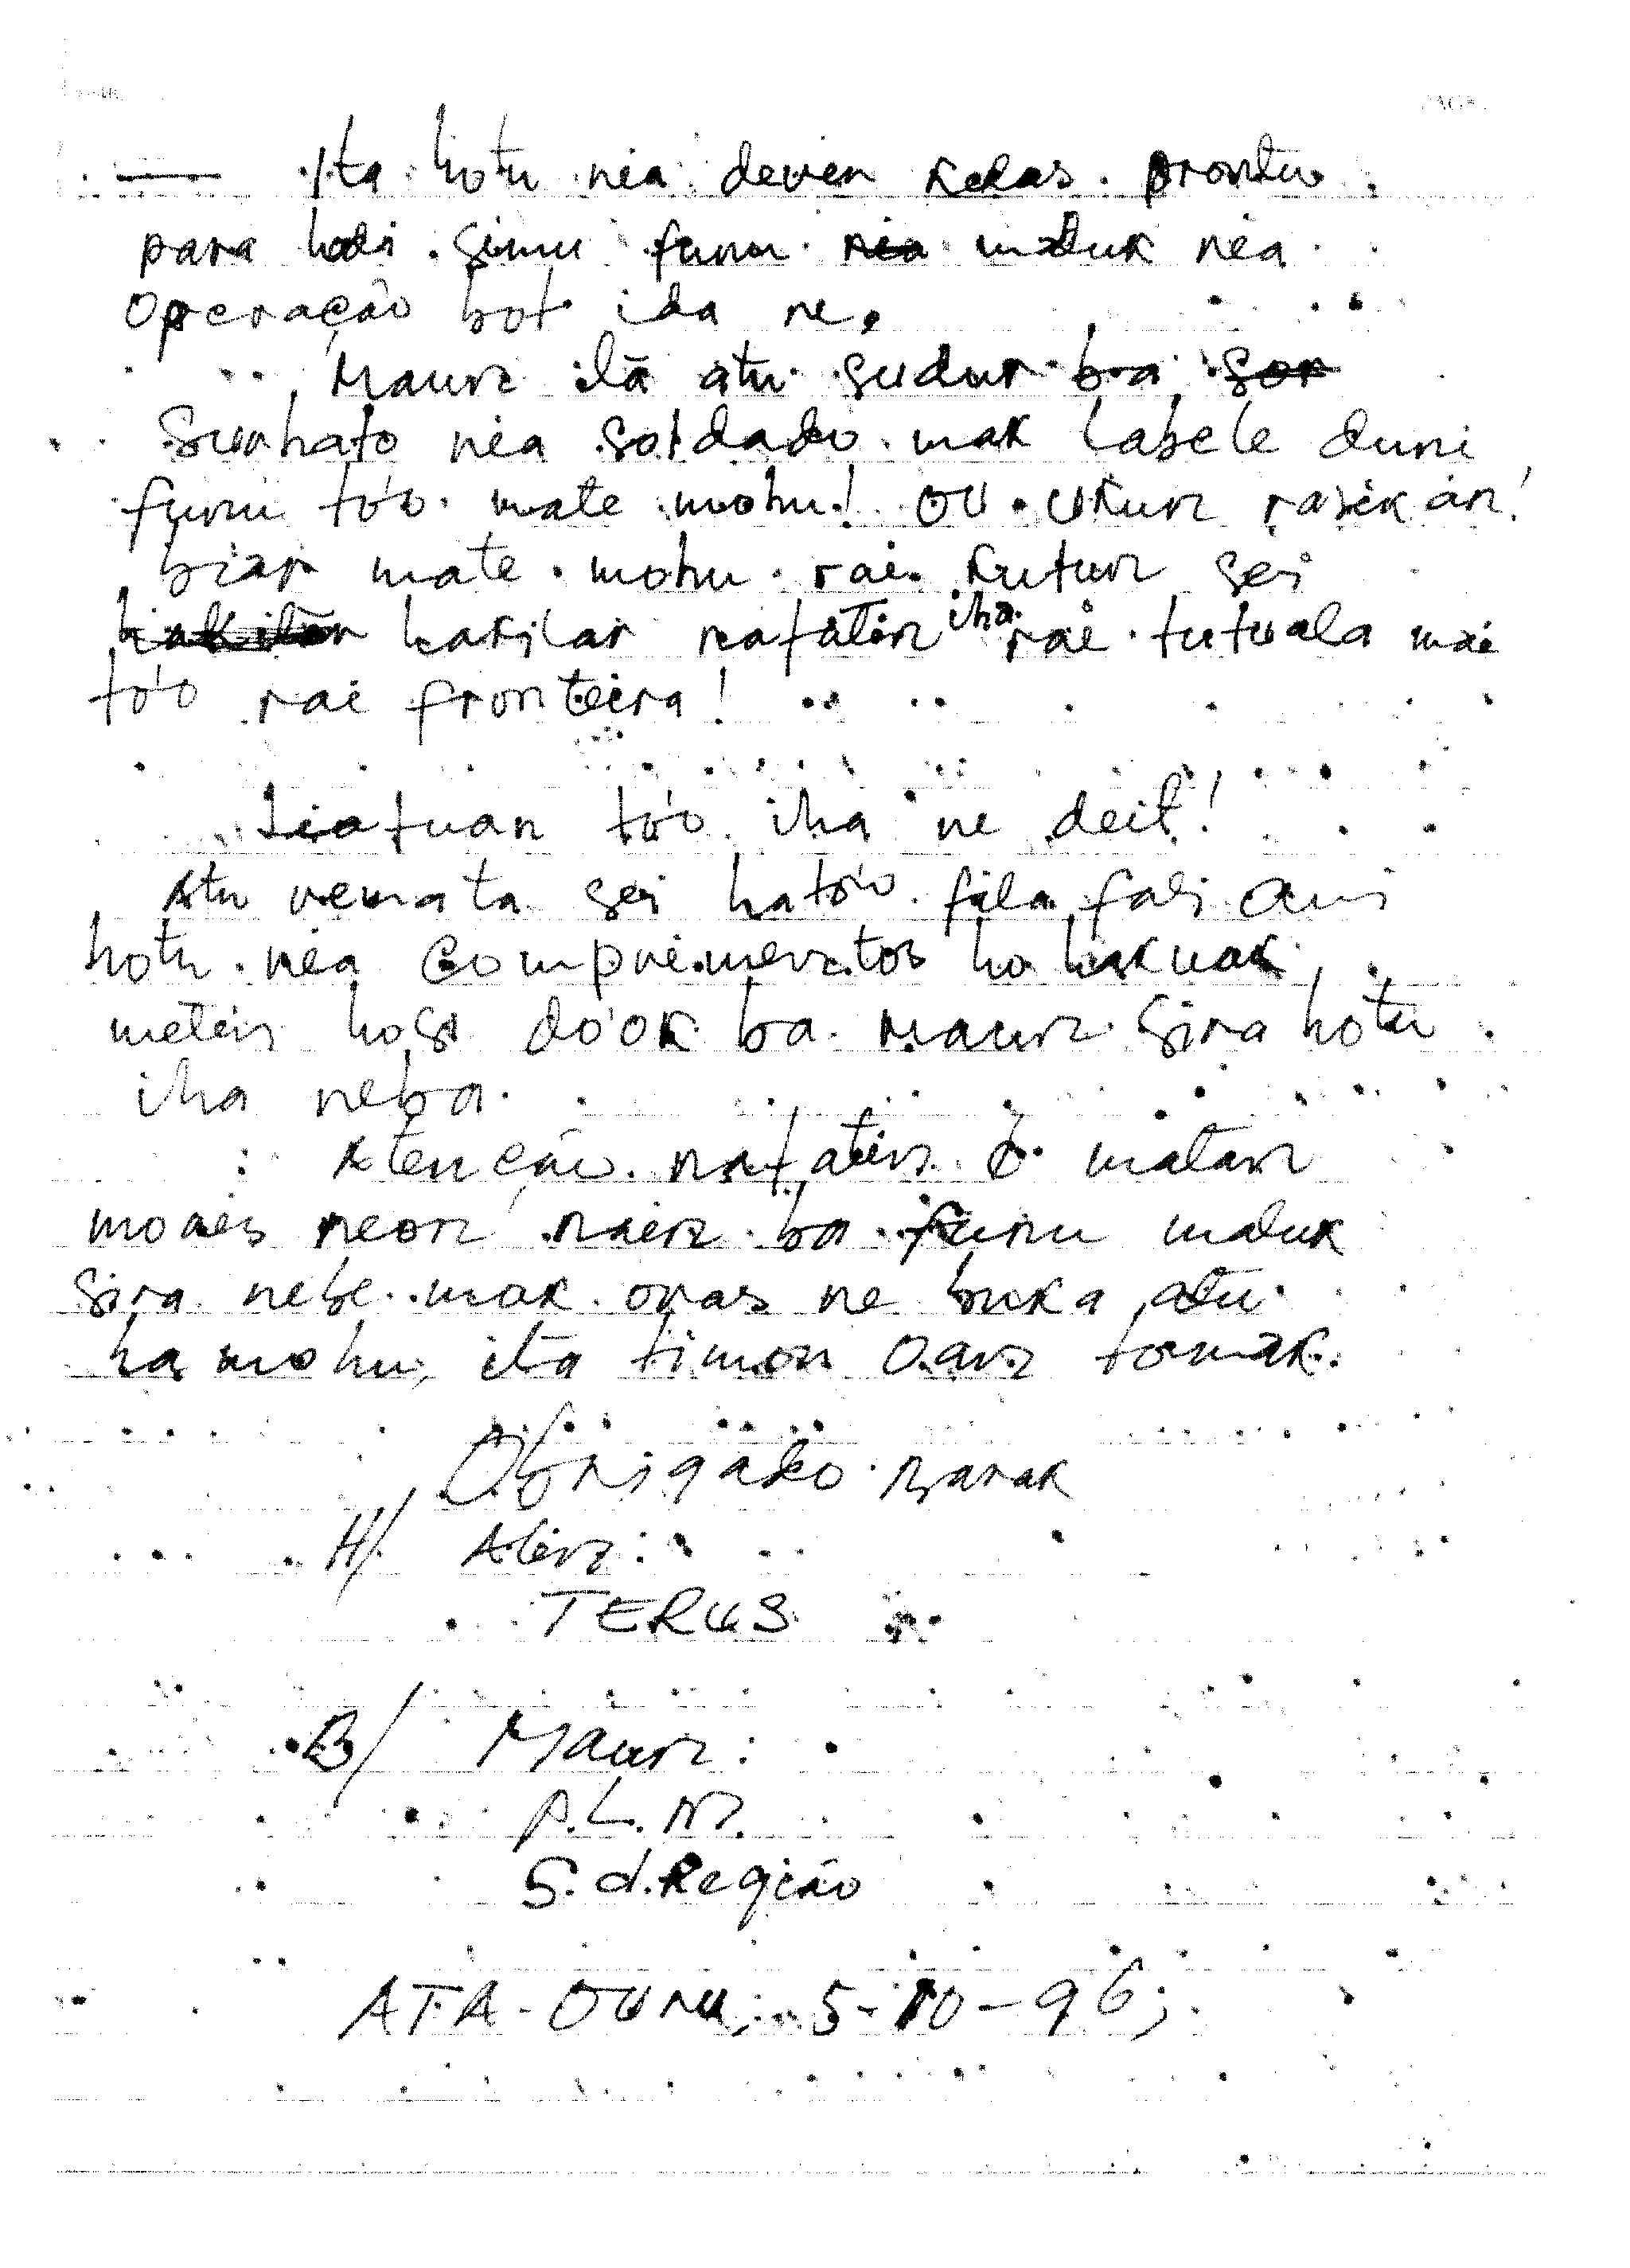 — Ita hotu nia deven kelas prontu
para hodi simu funu nia maluk nia
Operação bot ida ne.
Maun ilā atu sudur ba sor
Surhato nia soldado mak labele duni
funu to'o mate mohu! OU ukun rasik án!
biar mate mohu rai kutun sei
hakilar nafatin iha rai tutuala mai
to'o rai fronteira!
Liafuan to'o iha ne deit!
Atu remata sei hato'o fila fali ami
hotu nia Comprimentos ho hakuak
metin hosi do'ok ba maun sira hotu
iha neba.
Atenção nafatin ó matan
moris neon nain ba funu maluk
sira nebe mak oras ne buka atu
ha mohu, ita timor oan tomak.
Obrigado Barak
H/ Alin:
TERUS
B/ Maun:
P.L.M.
S.d.Região
ATA-OUNU, 5-10-96;